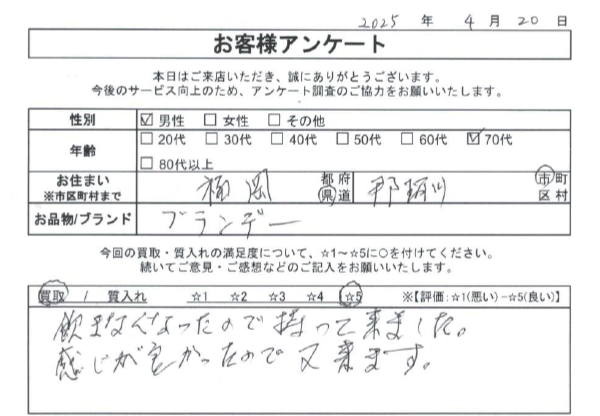 2025 年 4 月 20 日
お客様アンケート
本日はご来店いただき、誠にありがとうございます。
今後のサービス向上のため、アンケート調査のご協力をお願いいたします。
性別 ☑ 男性 ☐ 女性 ☐ その他
年齢 ☐ 20代 ☐ 30代 ☐ 40代 ☐ 50代 ☐ 60代 ☑ 70代
☐ 80代以上
お住まい ※市区町村まで 福岡 都 府 県 道 那珂川 市 町 区 村
お品物/ブランド ブランデー
今回の買取・質入れの満足度について、☆1～☆5に○を付けてください。
続いてご意見・ご感想などのご記入をお願いいたします。
買取 / 質入れ ☆1 ☆2 ☆3 ☆4 ☆5 ※【評価:☆1(悪い)－☆5(良い)】
飲まなくなったので持って来ました。
感じが良かったので又来ます。